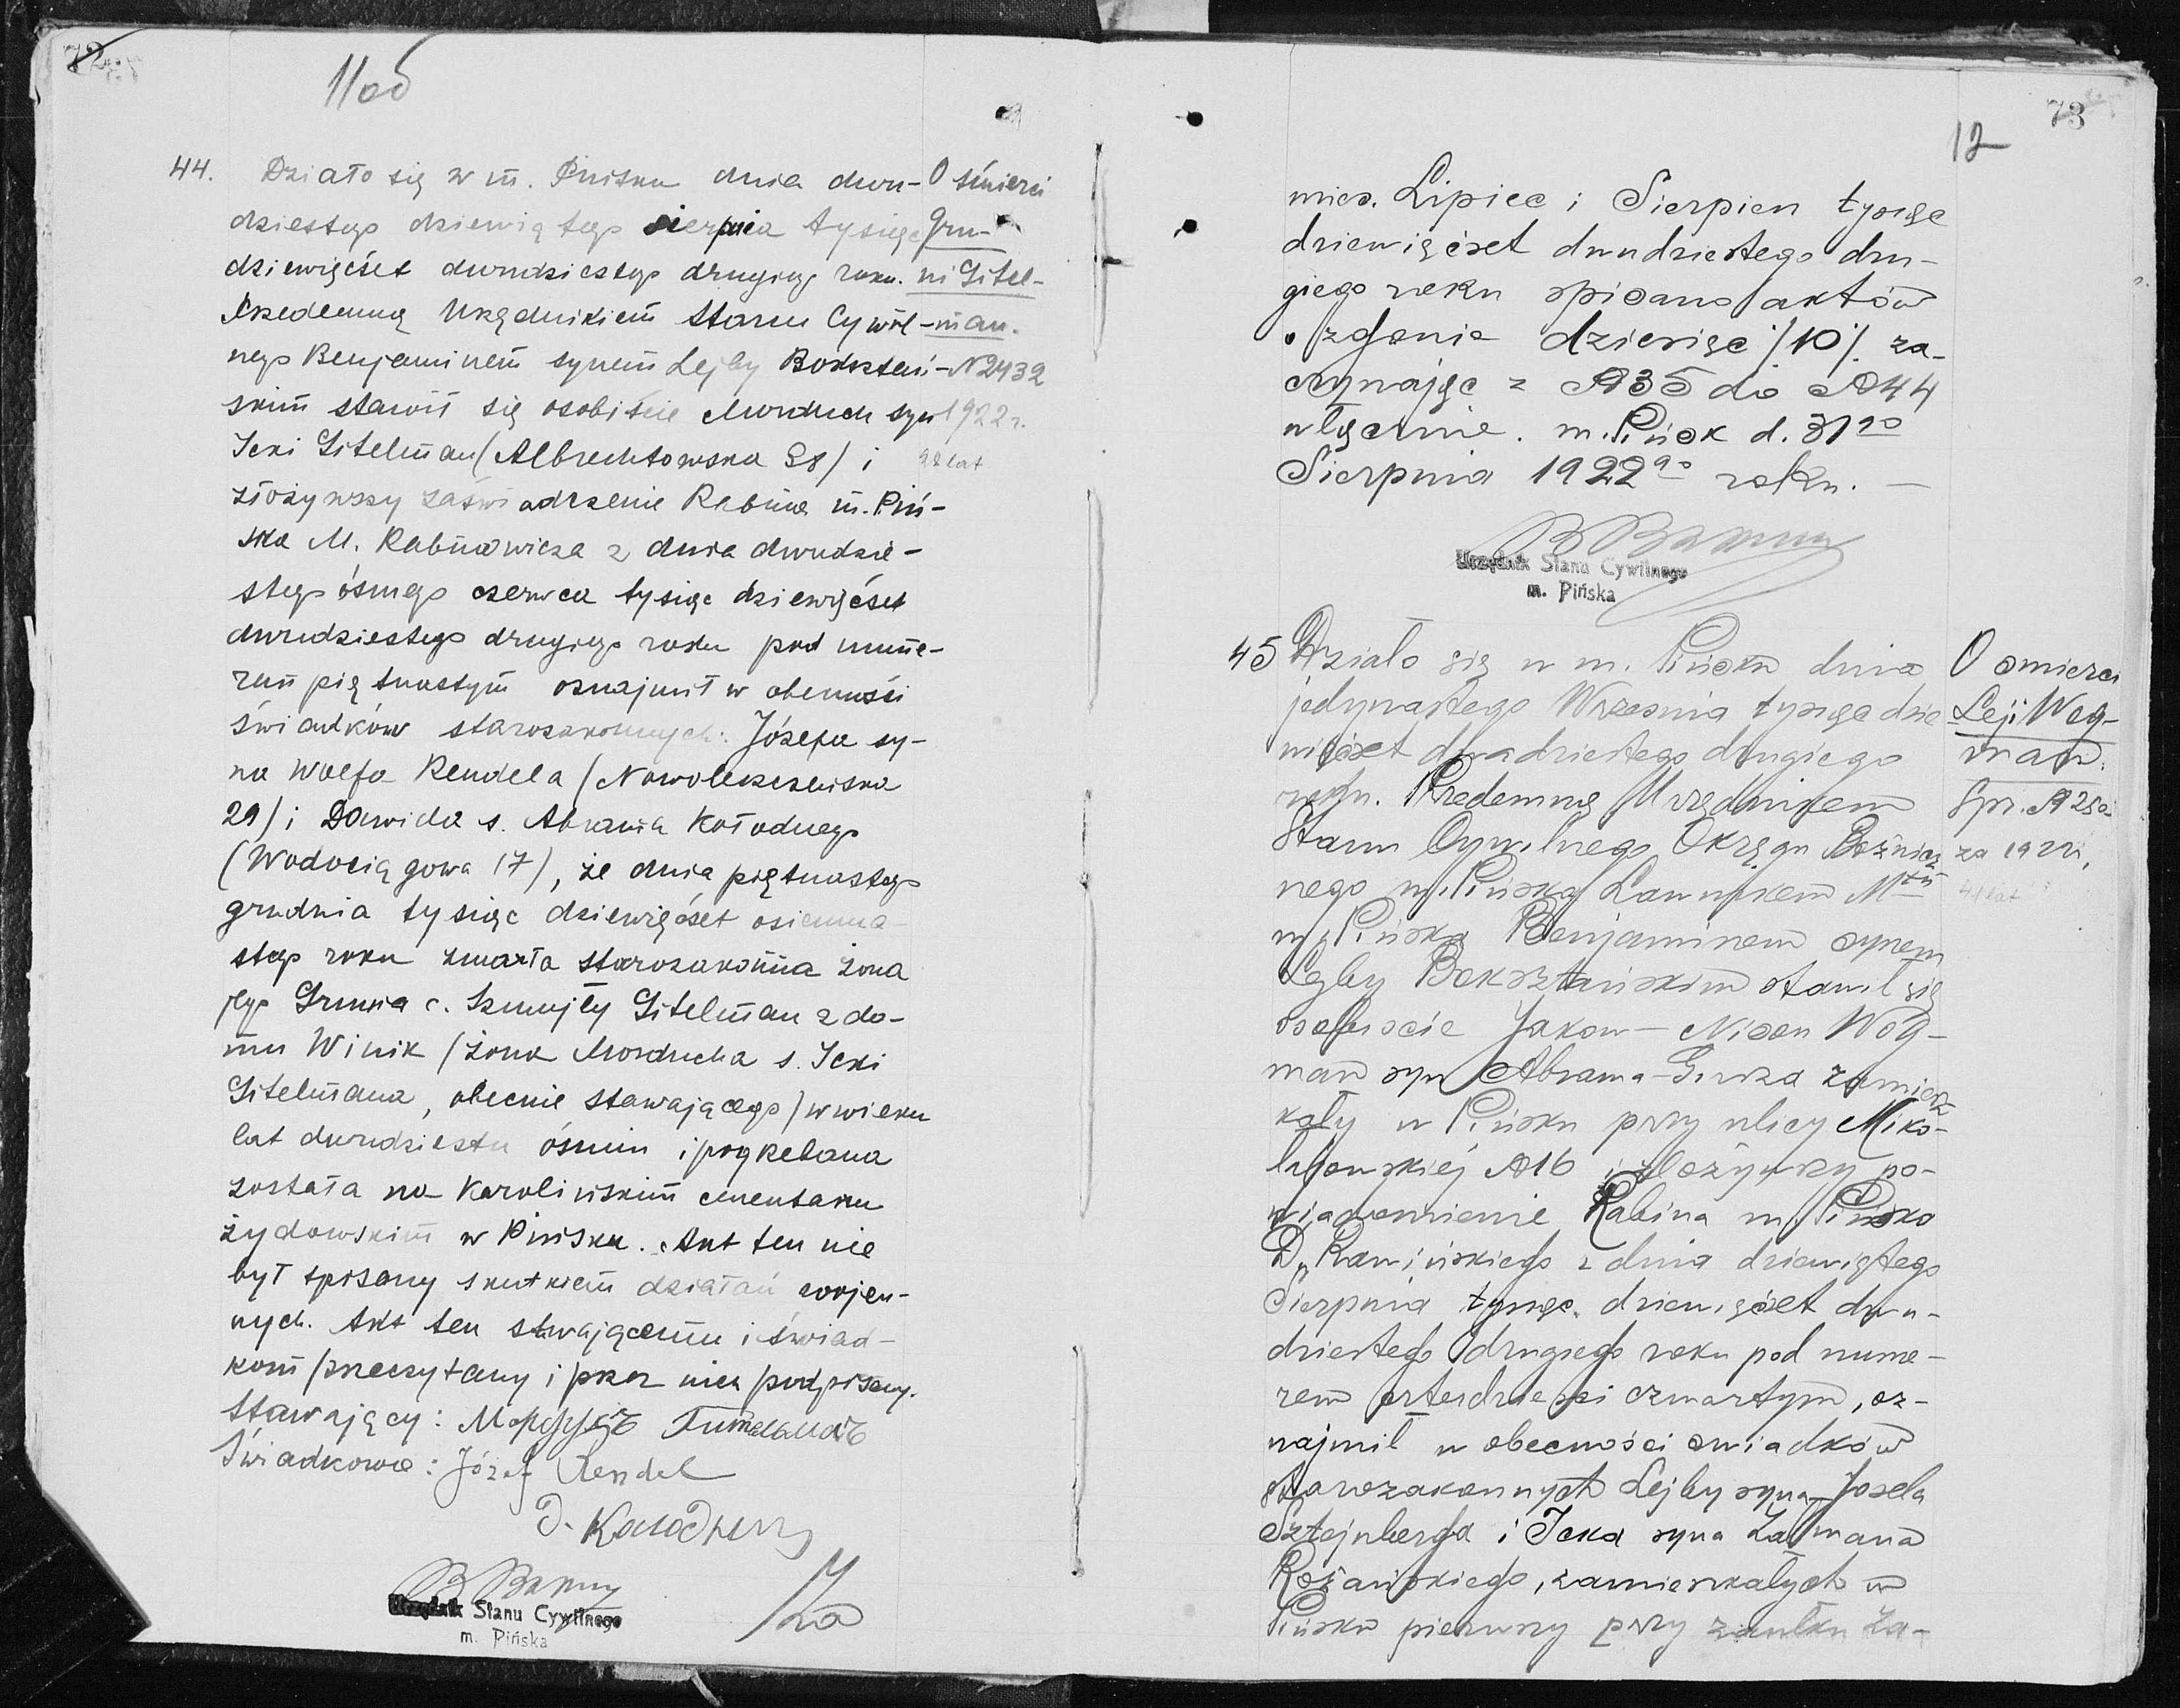 72
11об
44. Działo się w m. Pińsku dnia dwu-
dziestego dziewiątego sierpnia tysiąc
dziewięćset dwudziestego drugiego roku.
Przedemną Urzędnikiem Stanu Cywil-
nego Benjaminem synem Lejby Boksztań-
skim stawił się osobiście Morduch syn
Icki Gitelman (Albrechtowska 28) i
złożywszy zaświadczenie Rabina m. Piń-
ska M. Rabinowicza z dnia dwudzie-
stego ósmego czerwca tysiąc dziewięćset
dwudziestego drugiego roku pod nume-
rem piętnastym oznajmił w obecności
świadków starozakonnych: Józefa sy-
na Wolfa Rendela (
29) i Dawida s. Abrama Kołodnego
(Wodociągowa 17), że dnia piętnastego
grudnia tysiąc dziewięćset osiemna-
stego roku zmarła starozakonna żona
jego Grunia c. Szmujły Gitelman z do-
mu Winik (żona Morducha s. Icki
Gitelmana, obecnie stawającego) w wieku
lat dwudziestu ośmiu i pogrzebana
została na Karolińskim cmentarzu
żydowskim w Pińsku. Akt ten nie
był spisany skutkiem działań wojen-
nych. Akt ten stawającemu i świad-
kom przeczytany i przez nich podpisany.
Stawający: Мордухъ Гительманъ
Świadkowie: Józef Rendel
D. Kołodny
Urzędnik Stanu Cywilnego
m. Pińska
O śmierci
Gru-
ni Gitel-
man.
N2432
1922 r.
28 lat
73
12
mies. Lipiec i Sierpien tysiąc
dziewięćset dwudziestego dru-
giego roku spisano aktów
o zgonie dziesięć /10/. za-
czynając z №35 do №44
włącznie. m. Pińsk d. 31go
Sierpnia 1922go roku. —
Urzędnik Stanu Cywilnego
m. Pińska
45 Działo się w m. Pińsku dnia
jedynastego Wrzesnia tysiąc dzie-
więćset dwadziestego drugiego
roku. Przedemną Urzędnikiem
Stanu Cywilnego Okręgu Bożnicz
nego m. Pińska Ławnikiem Mtu
m. Pińska Benjaminem synem
Lejby Boksztańskim stawił się
osobiscie Jakow-Nison Wog-
man syn Abrama- zamiesz
kały w Pińsku przy ulicy Miko-
łajowskiej №16 i złożywszy po-
wiadomienie Rabina m. Pińska
D. z dnia dziewiątego
Sierpnia tysiąc dziewięćset dwu-
dziestego drugiego roku pod nume-
rem czterdziesci czwartym, oz-
najmił w obecności swiadków
starozakonnych Lejby syna Josela
Sztejnberga i Icka syna Załmana
Rożańskiego, zamieszkałych w
Pińsku pierwszy przy zaułku Za-
O smierci
Leji Wog-
man.
Spr. №
za 1922 r.
41 lat